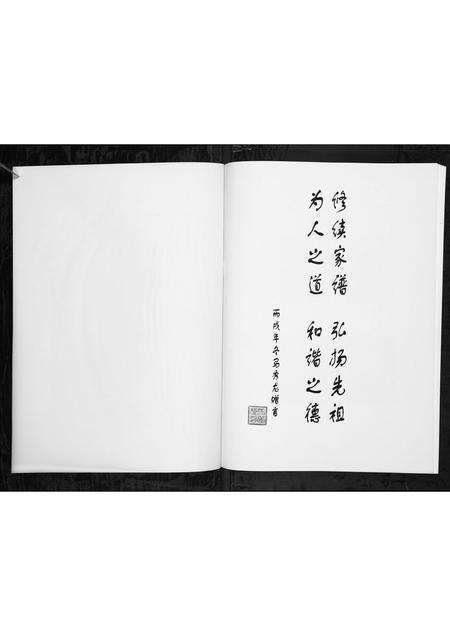 修续家谱 弘扬先祖
为人之道 和谐之德
丙戌年冬马秀龙赠言